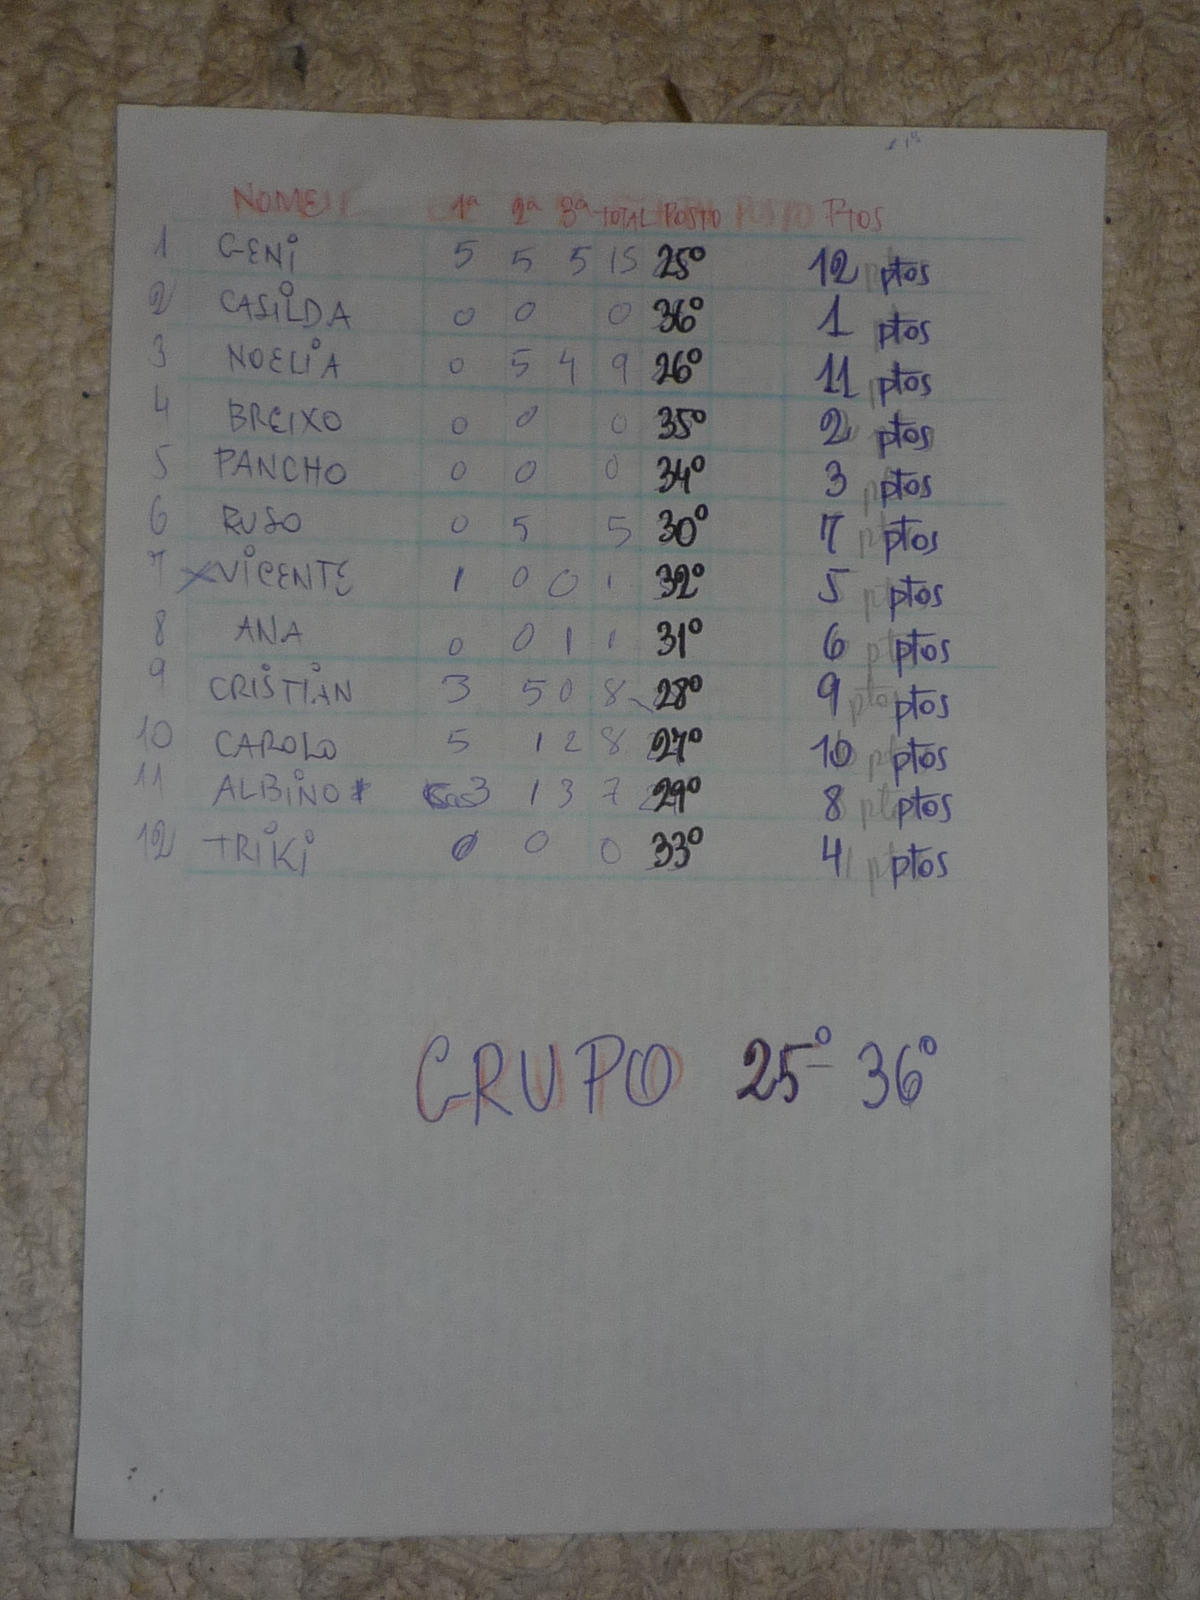 NOME 1ª 2ª 3ª TOTAL POSTO POSTO Ptos
1 GENi 5 5 5 15 25º 12 ptos
2 CASiLDA 0 0 0 36º 1 ptos
3 NOELiA 0 5 4 9 26º 11 ptos
4 BREIXO 0 0 0 35º 2 ptos
5 PANCHO 0 0 0 34º 3 ptos
6 RUSO 0 5 5 30º 7 ptos
7 XViCENTE 1 0 0 1 32º 5 ptos
8 ANA 0 0 1 1 31º 6 ptos
9 CRiSTiAN 3 5 0 8 28º 9 ptos
10 CAROLO 5 1 2 8 27º 10 ptos
11 ALBiNO 3 1 3 7 29º 8 ptos
12 TRiKi 0 0 0 33º 4 ptos
GRUPO 25º 36º